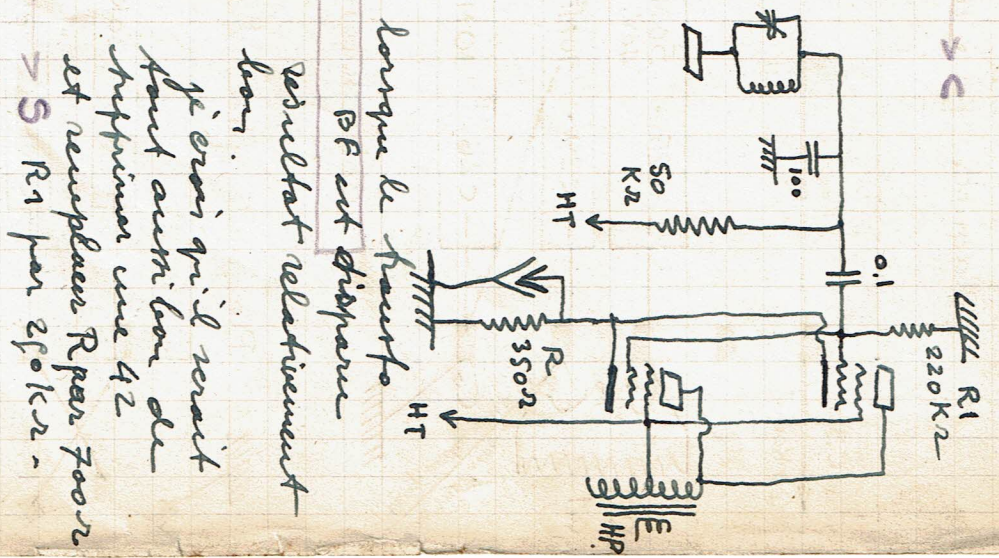 C
100
50
KΩ
HT
0.1
R1
220KΩ
R
350Ω
HT
E
HP.
lorsque le transfo
BF est disparu
resultat relativement
bon,
je crois qu'il serait
tout aussi bon de
supprimer une 42
et remplacer R par 700Ω
> S R1 par 250KΩ.